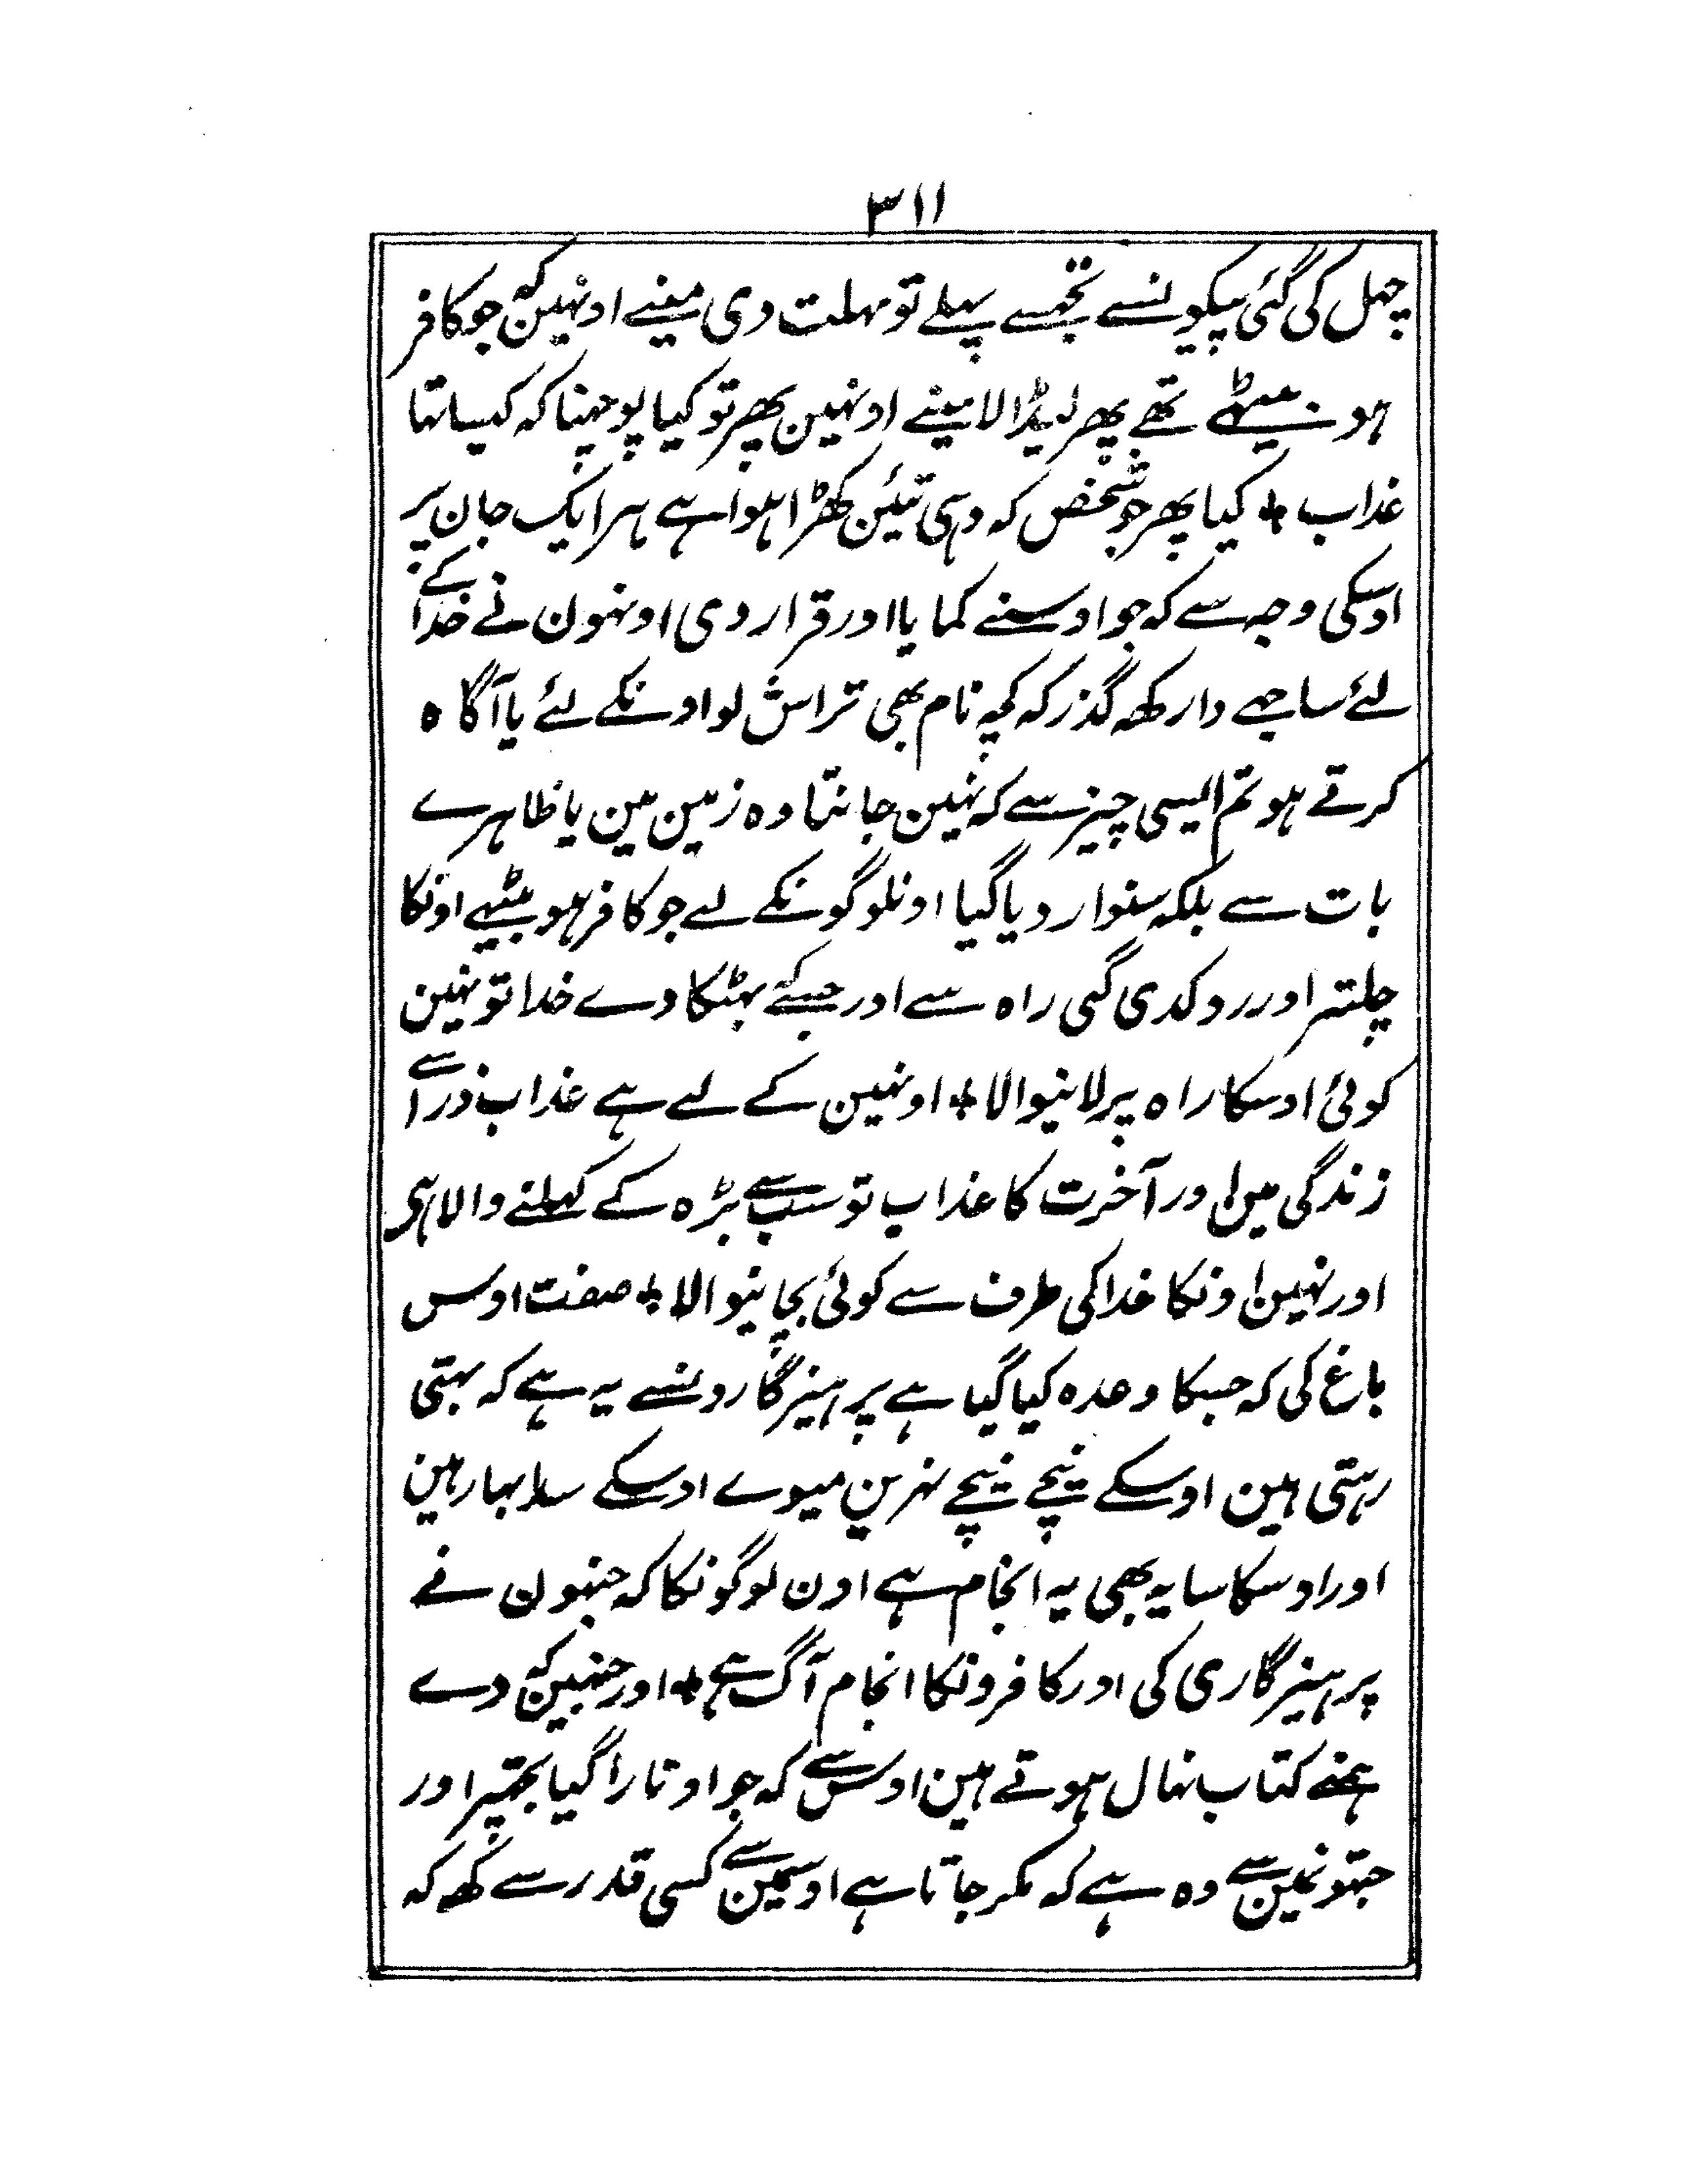 ۳۱۱
چہل کی گئی پیکونسے تجہسے پہلے تو مہلت دی مینے اونہین کہ جو کافر
ہو بیٹہے تہے پھر لیڈالا مینے اونہین پھر تو کیا پوچہنا کہ کیسا تہا
عذاب + کیا پھر جو شخص کہ وہی تئین کھڑا ہوا ہے ہر ایک جان پر
اوسکی وجہ سے کہ جو اوسنے کمایا اور قرار دی اونہون نے خدا کے
لئے ساجہے دار کھہ گذر کہ کچہ نام بھی تراش لو اونکے لئے یا آگاہ
کرتے ہو تم ایسی چیز سے کہ نہین جانتا وہ زمین مین یا ظاہرے
بات سے بلکہ سنوار دیا گیا اونلوگونکے لیے جو کافر ہو بیٹہے اونکا
چلتر اور روکدی گئی راہ سے اور جسکے بہٹکا دے خدا تو نہین
کوئی اوسکا راہ پر لانیوالا + اونہین کے لیے ہے عذاب ذرا سے
زندگی مین اور آخرت کا عذاب تو سب سے بڑہ کے کہلنے والا ہی
اور نہین اونکا خدا کی طرف سے کوئی بچانیوالا + صفت اوس
باغ کی کہ جسکا وعدہ کیا گیا ہے پرہیزگارونسے یہ ہے کہ بہتی
رہتی ہین اوسکے نیچے نیچے نہرین میوے اوسکے سدا بہار ہین
اور اوسکا سایہ بھی یہ انجام ہے اون لوگونکا کہ جنہون نے
پرہیزگاری کی اور کافرونکا انجام آگ ہے + اور جنہین کہ دے
ہمنے کتاب نہال ہوتے ہین اوس سے کہ جو اوتارا گیا تجہپر اور
جتہونمین سے وہ ہے کہ مکر جاتا ہے اوسمین سے کسی قدر سے کھہ کہ